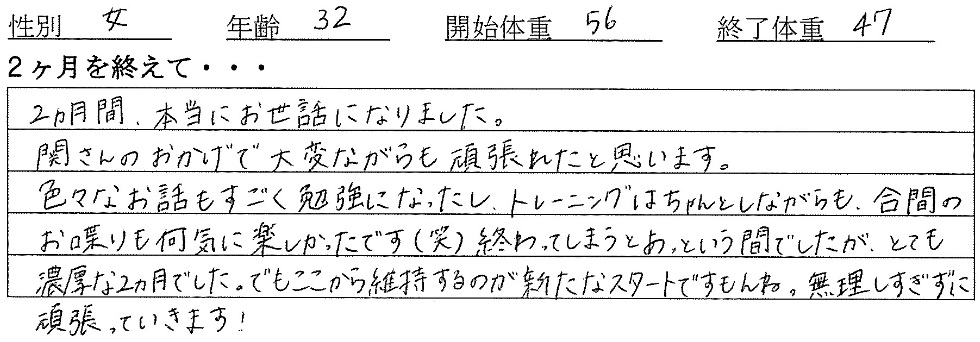 性別 女 年齢 32 開始体重 56 終了体重 47
2ヶ月を終えて・・・
2ヵ月間、本当にお世話になりました。
関さんのおかげで大変ながらも頑張れたと思います。
色々なお話もすごく勉強になったし、トレーニングはちゃんとしながらも、合間の
お喋りも何気に楽しかったです(笑)終わってしまうとあっという間でしたが、とても
濃厚な2ヵ月でした。でもここから維持するのが新たなスタートですもんね。無理しすぎずに
頑張っていきます!